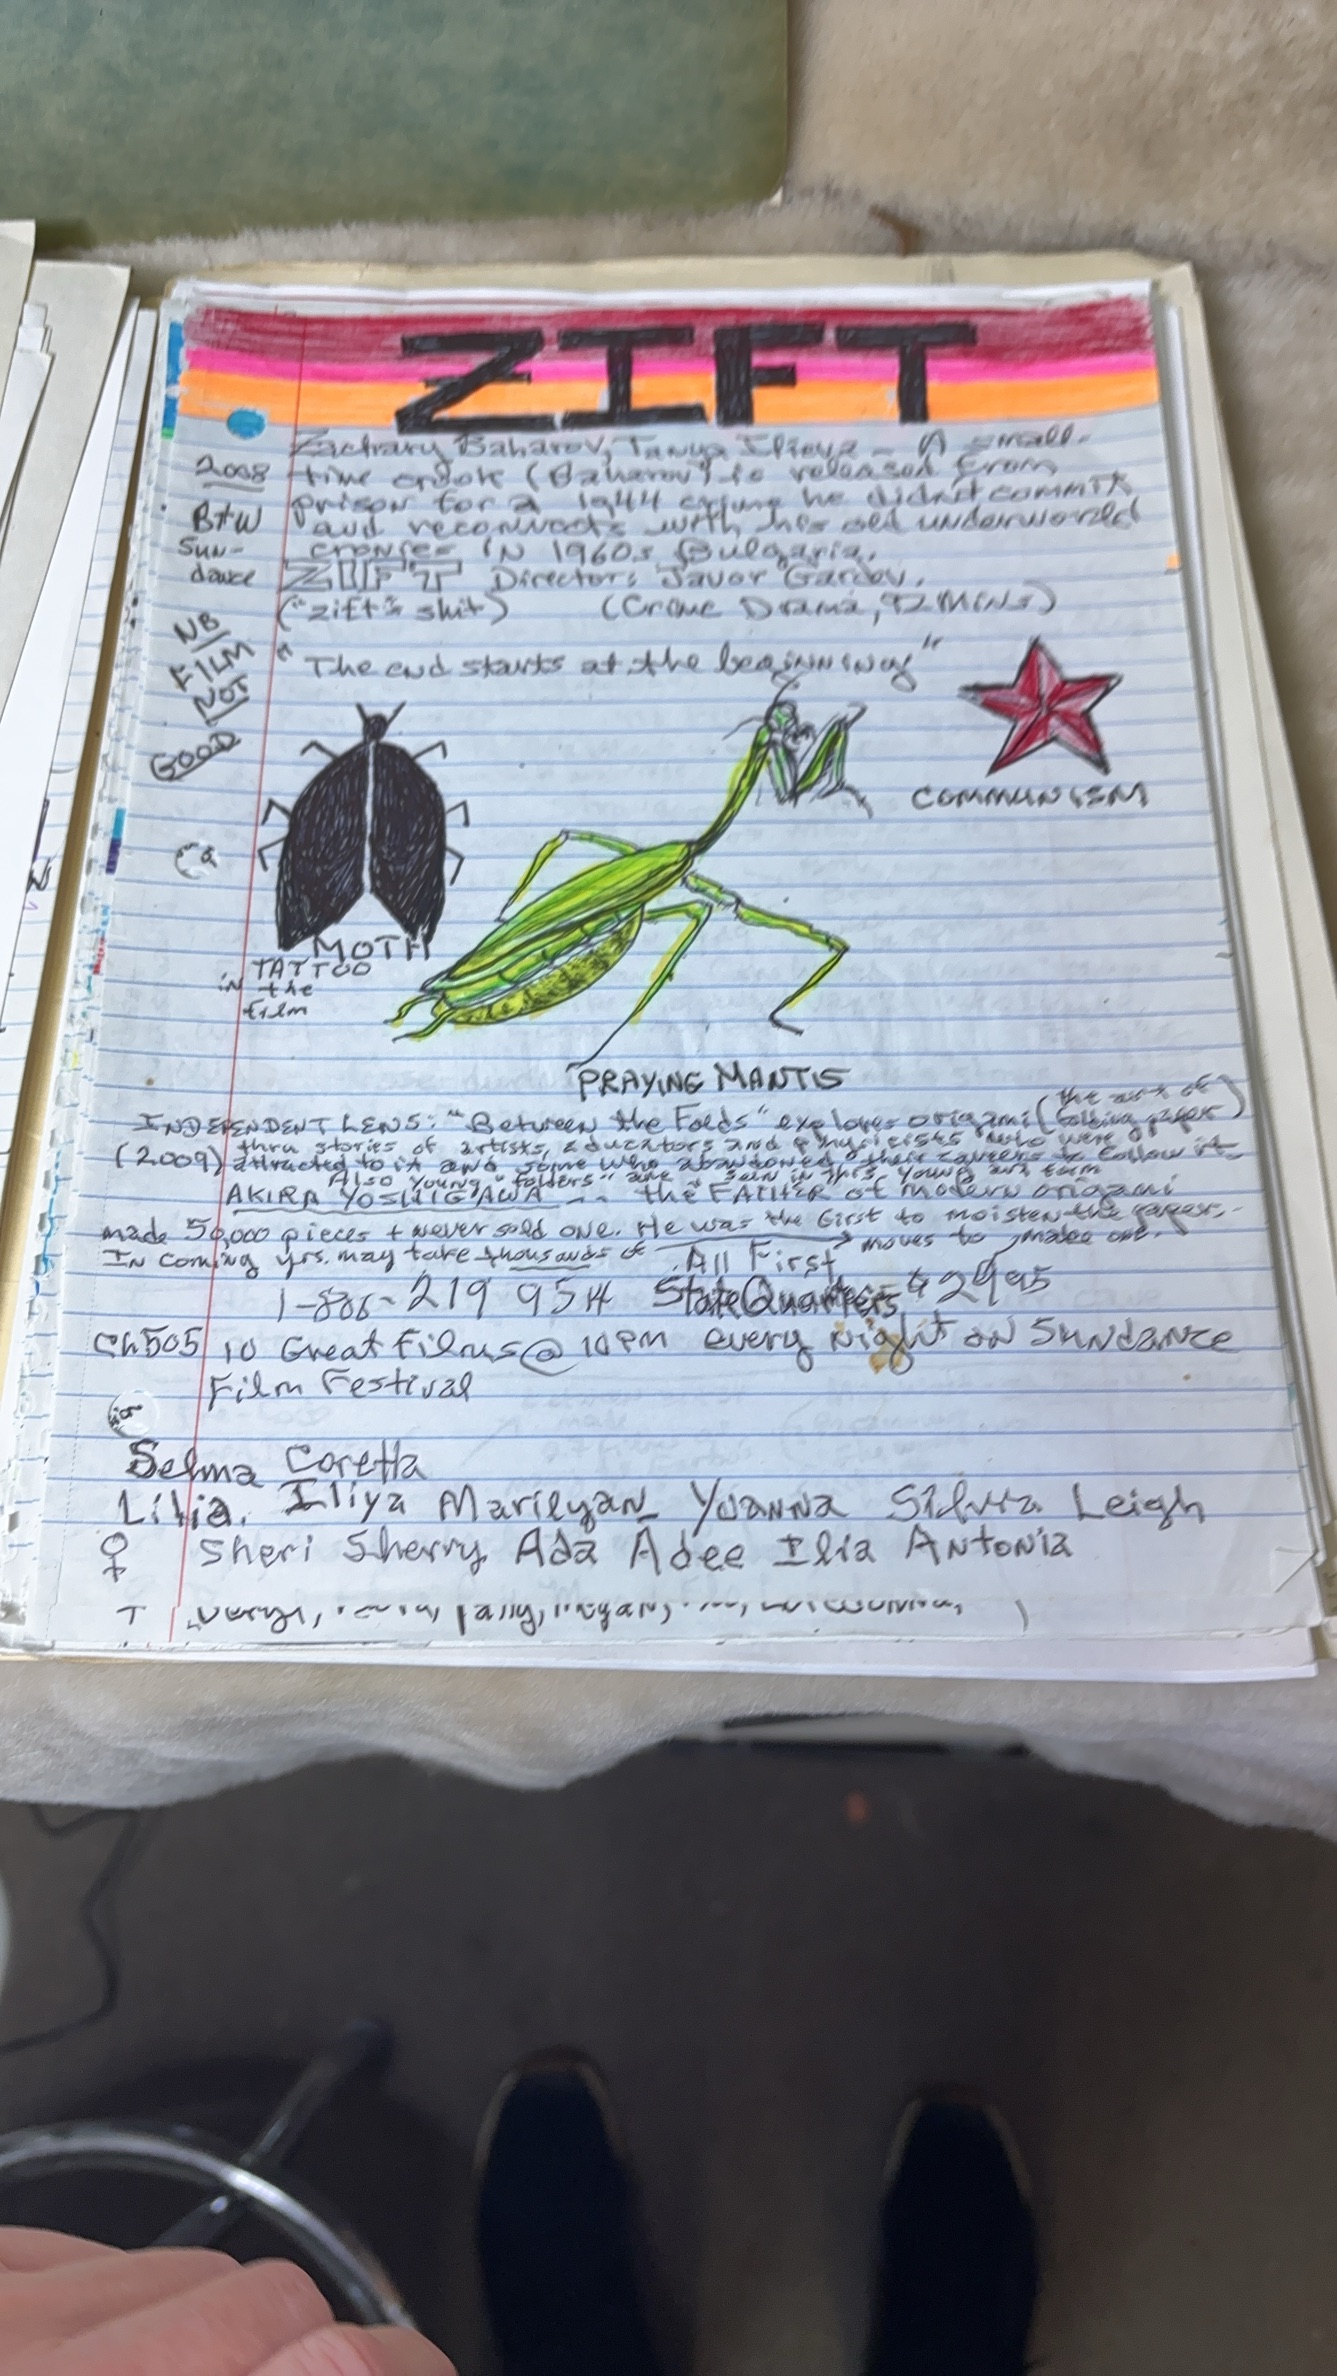 ZIFT
Zachrary Baharov, Tanya Ilieva - A small-
2008 time crook (Baharov) is released from
prison for a 1944 crime he didn't commit
B+W and reconnects with his old underworld
Sun- cronies IN 1960s Bulgaria.
dance ZIFT Director: Javor Gardev.
("zift"= shit) (Crime Drama, 92 MINS)
NB
FILM
NOT
GOOD
"The end starts at the beginning"
COMMUNISM
MOTH
TATTOO
in the
film
PRAYING MANTIS
INDEPENDENT LENS: "Between the Folds" explores origami (the art of folding paper)
(2009) thru stories of artists, educators and physicists who were
attracted to it and some who abandoned their careers to follow it.
Also young "folders" are seen in this young art form
AKIRA YOSHIGAWA -- the FATHER of modern origami
made 50,000 pieces + never sold one. He was the first to moisten the paper.
In coming yrs. may take thousands of moves to make one.
All First
1-806-219 954 State Quarters $2995
Ch505 10 Great Films @ 10PM every night on Sundance
Film Festival
Selma Coretta
Lilia. Iliya Marilyan Yoanna Silvia Leigh
♀ Sheri Sherry Ada Adee Ilia Antonia